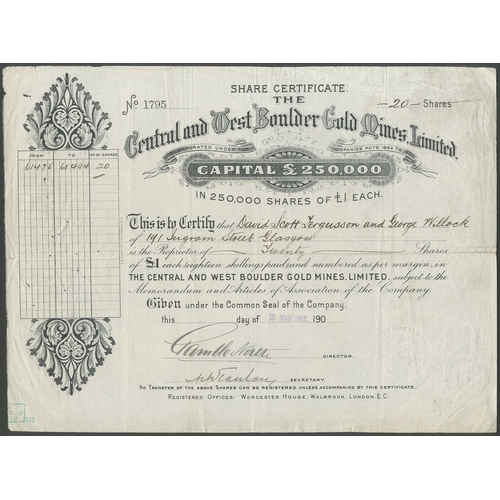 SHARE CERTIFICATE.
No 1795
THE
—20— Shares
Central and West Boulder Gold Mines, Limited.
INCORPORATED UNDER THE COMPANIES ACTS 1862 TO
CAPITAL £250,000
IN 250,000 SHARES OF £1 EACH.
FROM TO No OF SHARES
61475 61494 20
This is to Certify that David Scott Fergusson and George Willock
of 191 Ingram Street Glasgow
is the Proprietor of Twenty Shares
of £1 each, eighteen shillings paid, and numbered as per margin, in
THE CENTRAL AND WEST BOULDER GOLD MINES, LIMITED. subject to the
Memorandum and Articles of Association of the Company.
Given under the Common Seal of the Company,
this day of MAR 1902 190
DIRECTOR.
SECRETARY.
NO TRANSFER OF THE ABOVE SHARES CAN BE REGISTERED UNLESS ACCOMPANIED BY THIS CERTIFICATE.
REGISTERED OFFICES: WORCESTER HOUSE, WALBROOK, LONDON, E.C.